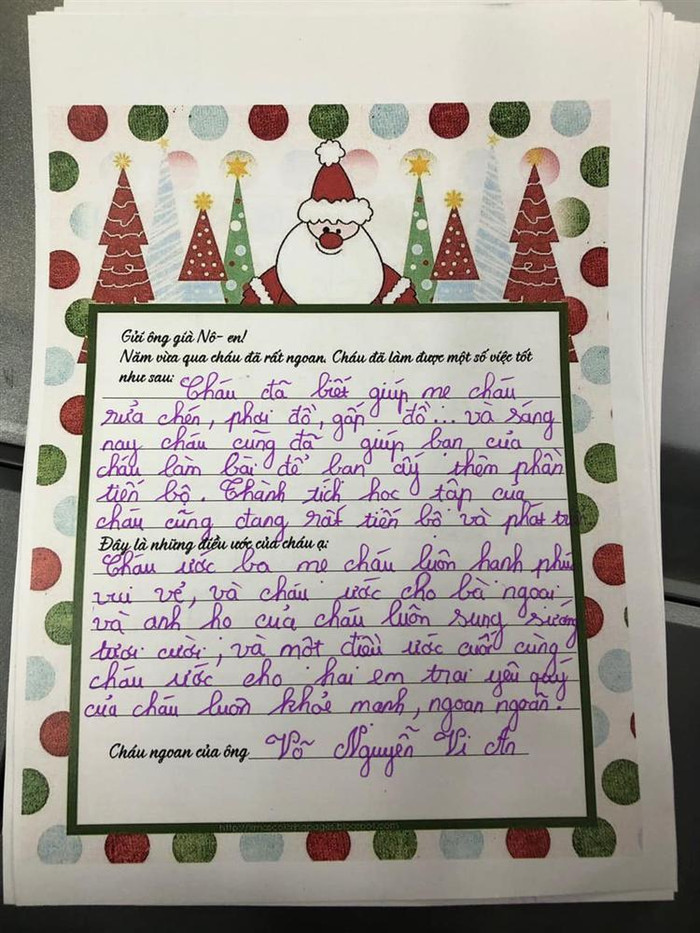 Gửi ông già Nô- en!
Năm vừa qua cháu đã rất ngoan. Cháu đã làm được một số việc tốt
như sau: Cháu đã biết giúp mẹ cháu
rửa chén, phơi đồ, gấp đồ... và sáng
nay cháu cũng đã giúp bạn của
cháu làm bài để bạn ấy thêm phần
tiến bộ. Thành tích học tập của
cháu cũng đang rất tiến bộ và phát tr
Đây là những điều ước của cháu ạ:
Cháu ước ba mẹ cháu luôn hạnh phú
vui vẻ, và cháu ước cho bà ngoại
và anh họ của cháu luôn sung sướng
tươi cười; và một điều ước cuối cùng
cháu ước cho hai em trai yêu quý
của cháu luôn khỏe mạnh, ngoan ngoãn.
Cháu ngoan của ông Võ Nguyễn Vi An